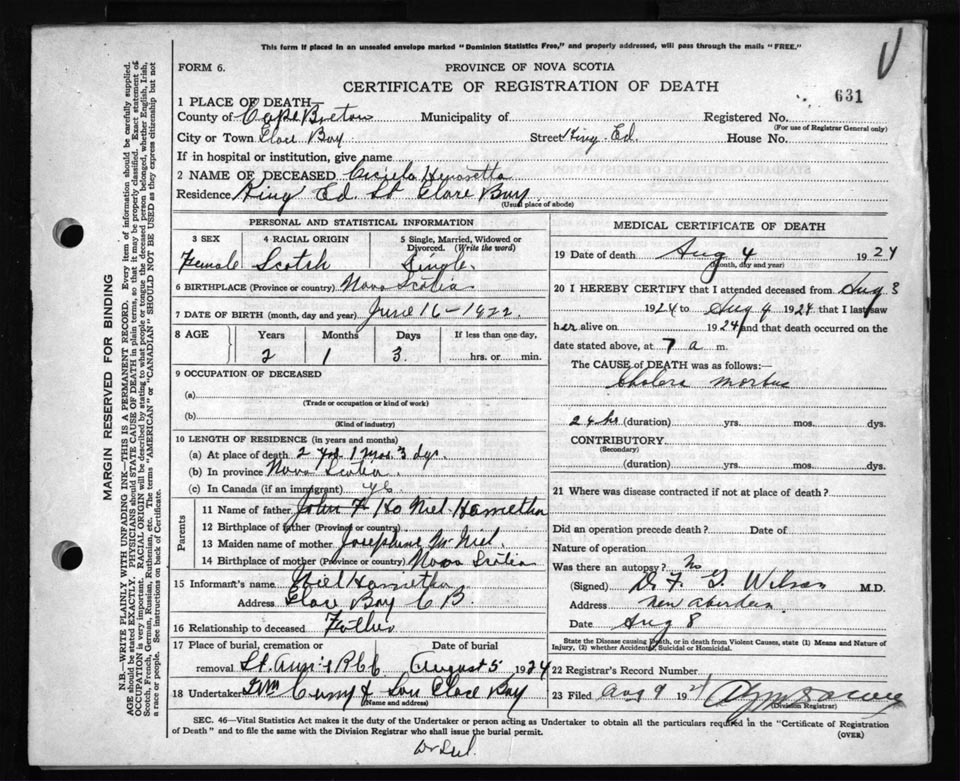 This form if placed in an unsealed envelope marked "Dominion Statistics Free," and properly addressed, will pass through the mails "FREE."
FORM 6.
PROVINCE OF NOVA SCOTIA
CERTIFICATE OF REGISTRATION OF DEATH
631
1 PLACE OF DEATH
County of Cape Breton Municipality of Registered No.
(For use of Registrar General only)
City or Town Glace Bay Street King Ed. House No.
If in hospital or institution, give name
2 NAME OF DECEASED
Residence King Ed. St Glace Bay
(Usual place of abode)
PERSONAL AND STATISTICAL INFORMATION
3 SEX 4 RACIAL ORIGIN 5 Single, Married, Widowed or Divorced. (Write the word)
Female Scotch Single.
6 BIRTHPLACE (Province or country) Nova Scotia
7 DATE OF BIRTH (month, day and year) June 16-1922.
8 AGE Years Months Days If less than one day,
2 1 3. hrs. or min.
9 OCCUPATION OF DECEASED
(a)
(Trade or occupation or kind of work)
(b)
(Kind of industry)
10 LENGTH OF RESIDENCE (in years and months)
(a) At place of death 2 yrs. 1 mos. 3 dys.
(b) In province Nova Scotia.
(c) In Canada (if an immigrant) yes
Parents
11 Name of father John
12 Birthplace of father (Province or country)
13 Maiden name of mother Josephine McNiel.
14 Birthplace of mother (Province or country) Nova Scotia
15 Informant's name
Address Glace Bay C B.
16 Relationship to deceased Father
17 Place of burial, cremation or removal St. Ann's August 5 1924
18 Undertaker Curry & Son Glace Bay
(Name and address)
MEDICAL CERTIFICATE OF DEATH
19 Date of death Aug 4 1924
(Month, day and year)
20 I HEREBY CERTIFY that I attended deceased from Aug 3
1924 to Aug 4 1924 that I last saw
her alive on 1924 and that death occurred on
date stated above, at 7 a m.
The CAUSE of DEATH was as follows:—
Cholera morbus
24 hrs (duration) yrs. mos. dys.
CONTRIBUTORY
(Secondary)
(duration) yrs. mos. dys.
21 Where was disease contracted if not at place of death?
Did an operation precede death? Date of
Nature of operation
Was there an autopsy? No
(Signed) Wilson M.D.
Address New Aberdeen.
Date Aug 8
State the Disease causing Death, or in death from Violent Causes, state (1) Means and Nature of Injury, (2) whether Accidental, Suicidal or Homicidal.
22 Registrar's Record Number
23 Filed Aug 9 192
(Division Registrar)
SEC. 46—Vital Statistics Act makes it the duty of the Undertaker or person acting as Undertaker to obtain all the particulars required in the "Certificate of Registration of Death" and to file the same with the Division Registrar who shall issue the burial permit.
(OVER)
MARGIN RESERVED FOR BINDING
N.B.—WRITE PLAINLY WITH UNFADING INK—THIS IS A PERMANENT RECORD. Every item of information should be carefully supplied.
AGE should be stated EXACTLY. PHYSICIANS should STATE CAUSE OF DEATH in plain terms, so that it may be properly classified. Exact statement of
OCCUPATION is very important. RACIAL ORIGIN will be described by stating to what people or tongue the deceased person belonged, whether English, Irish,
Scotch, French, German, Russian, Ruthenian, etc. The terms "AMERICAN" or "CANADIAN" SHOULD NOT BE USED as they express citizenship but not
a race or people. See instructions on back of Certificate.